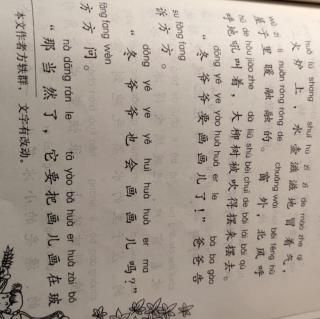 huǒ lú shang shuǐ hú zī zī de mào zhe qì
火炉上，水壶滋滋地冒着气，
wū zi li nuǎn róng róng de chuāng wài běi fēng hū
屋子里暖融融的。窗外，北风呼
hū de hǒu jiào zhe dà liǔ shù bèi chuī de bǎi lái bǎi qù
呼地吼叫着，大柳树被吹得摆来摆去。
dōng yé ye yào huà huà er le bà ba gào
“冬爷爷要画画儿了！”爸爸告
su fāng fang
诉方方。
dōng yé ye yě huì huà huà er ma
“冬爷爷也会画画儿吗？”
fāng fang wèn
方方问。
nà dāng rán le tā yào bǎ huà er huà zài bō
“那当然了，它要把画儿画在玻
本文作者方轶群，文字有改动。